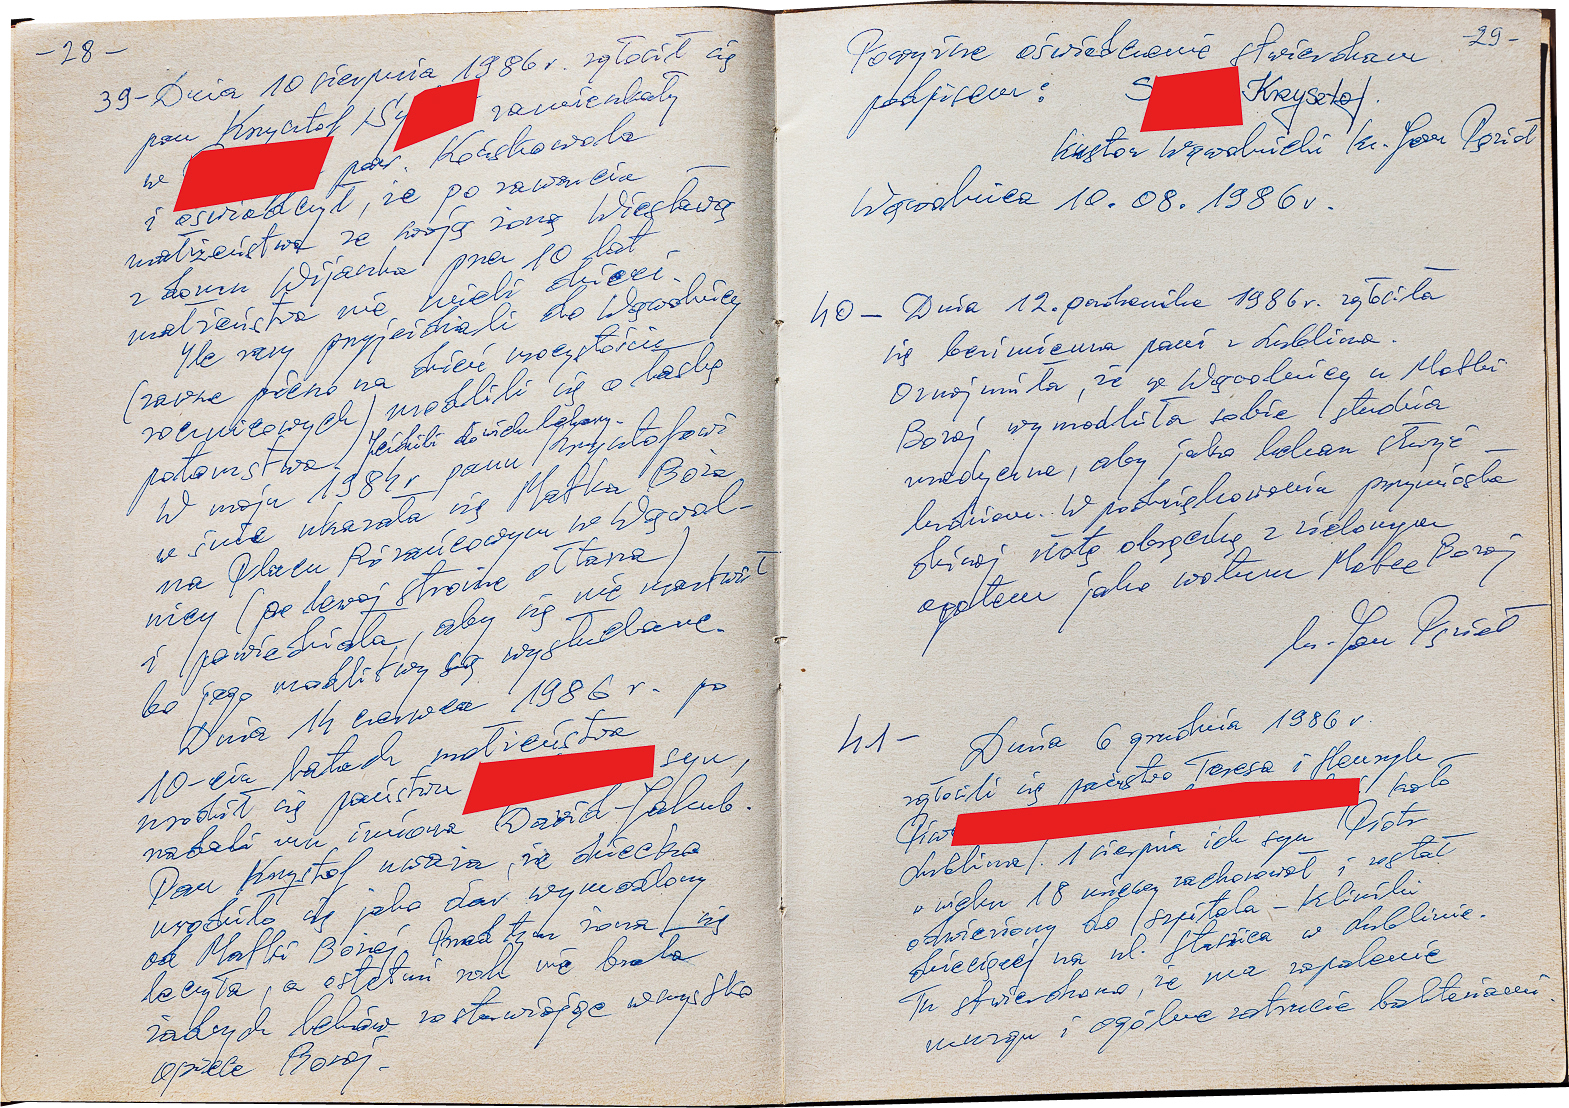 -28-
39- Dnia 10 sierpnia 1986 r. zgłosił się
pan Krzysztof zamieszkały
w par. Końskowola
i oświadczył, że po zawarciu
małżeństwa ze swoją żoną Wiesławą
z domu przez 10 lat
małżeństwa nie mieli dzieci.
Ile razy przyjeżdżali do Wąwolnicy
(zawsze pieszo na dzień uroczystości
rocznicowych) modlili się o łaskę
potomstwa. Jeździli do wielu lekarzy.
W maju 1984 r panu Krzysztofowi
w śnie ukazała się Matka Boża
na Placu Różańcowym w Wąwol-
nicy (po lewej stronie ołtarza)
i powiedziała, aby się nie martwił
bo jego modlitwy są wysłuchane.
Dnia 14 czerwca 1986 r. po
10-ciu latach małżeństwa
urodził się państwu syn,
nadali mu imiona Dawid-Jakub.
Pan Krzysztof uważa, że dziecko
urodziło się jako dar wymodlony
od Matki Bożej. Przed tym żona się
leczyła, a ostatni rok nie brała
żadnych leków zostawiając wszystko
opiece Bożej.
-29-
Powyższe oświadczenie stwierdzam
podpisem: S Krzysztof.
Kustosz Wąwolnicki ks. Jan Pęzioł
Wąwolnica 10.08.1986 r.
40- Dnia 12. października 1986 r. zgłosiła
się bezimienna pani z Lublina.
Oznajmiła, że w Wąwolnicy u Matki
Bożej wymodliła sobie studia
medyczne, aby jako lekarz służyć
ludziom. W podziękowaniu przyniosła
dzisiaj złotą obrączkę z zielonym
opalem jako wotum Matce Bożej
ks. Jan Pęzioł
41- Dnia 6 grudnia 1986 r.
zgłosili się państwo Teresa i Henryk
koło
Lublina/. 1 sierpnia ich syn Piotr
w wieku 18 miesięcy zachorował i został
odwieziony do szpitala - Kliniki
dziecięcej na ul. Staszica w Lublinie.
Tu stwierdzono, że ma zapalenie
mózgu i ogólne zatrucie bakteriami.